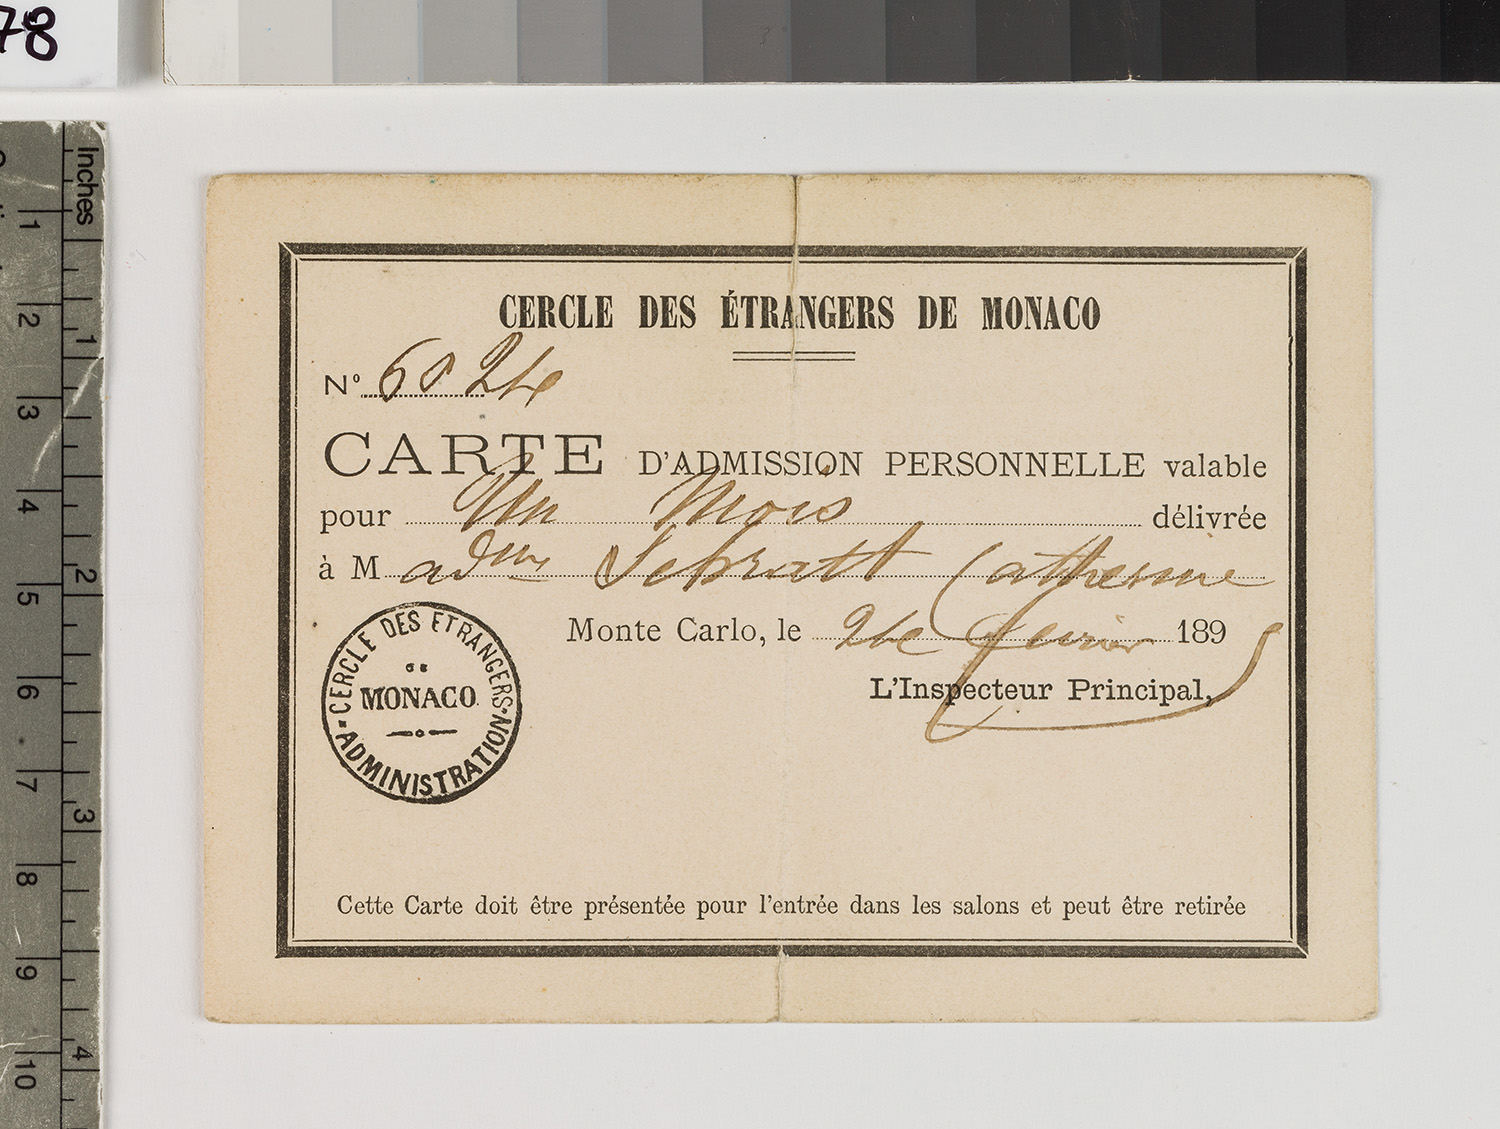 78
Inches
1 2 3 4 5 6 7 8 9 10
1 2 3 4
CERCLE DES ÉTRANGERS DE MONACO
Nº 6024
CARTE D'ADMISSION PERSONNELLE valable
pour Un Mois délivrée
à Madme Schratt Catherine
Monte Carlo, le 24 février 189
L'Inspecteur Principal,
CERCLE DES ETRANGERS
DE
MONACO
ADMINISTRATION
Cette Carte doit être présentée pour l'entrée dans les salons et peut être retirée